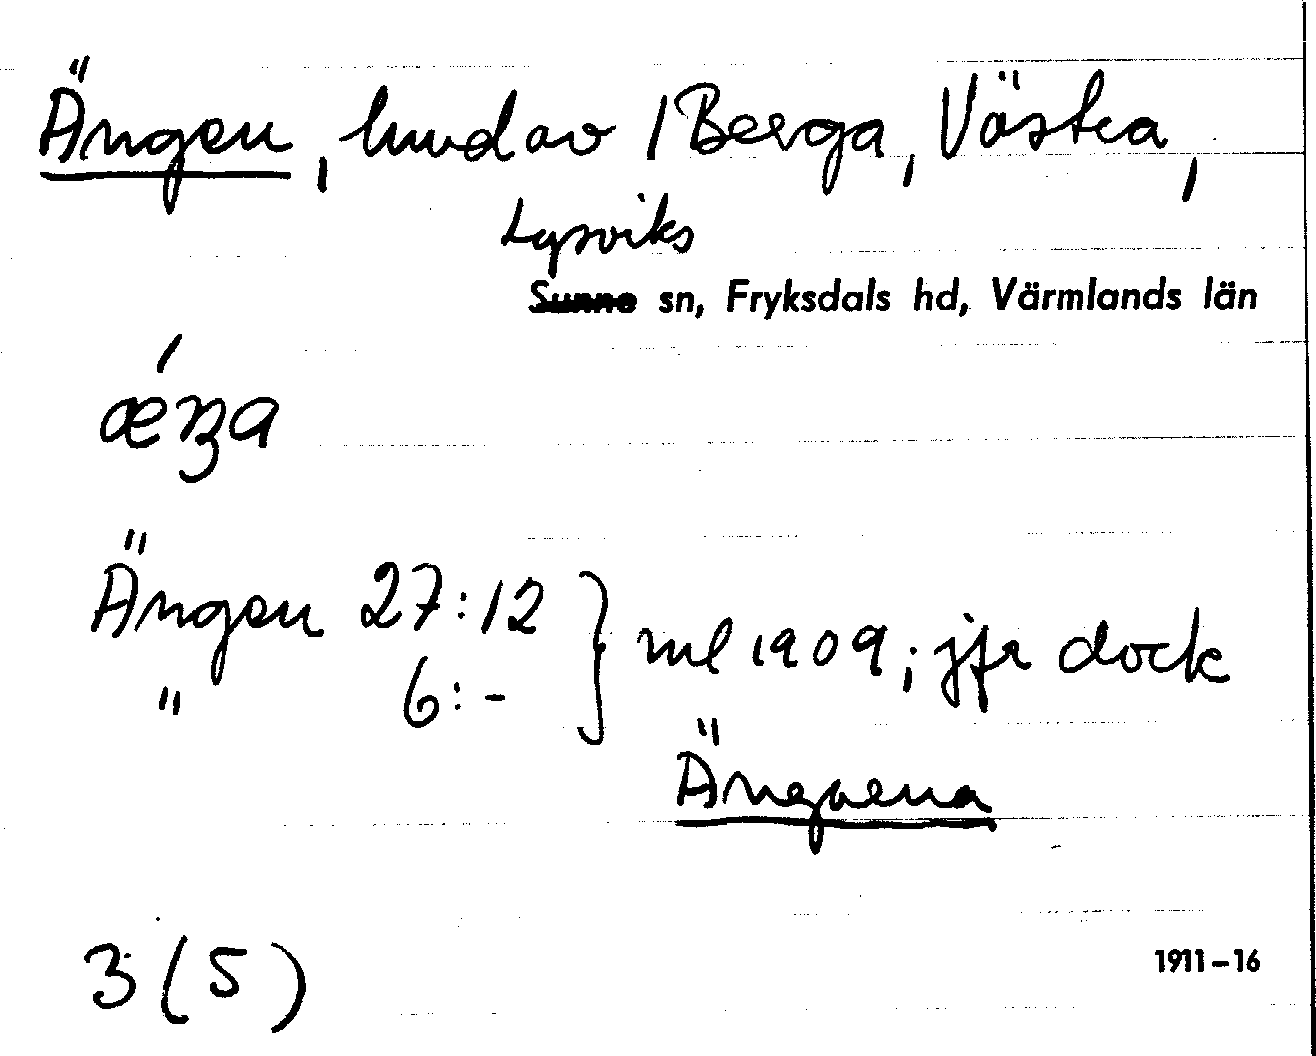 Ängen, hmd av / Berga, Västra,
Lysviks
Sunne sn, Fryksdals hd, Värmlands län
Ängen 27:12
" 6:- } ml 1909; jfr dock
Ängarna
3 (5)
1911-16